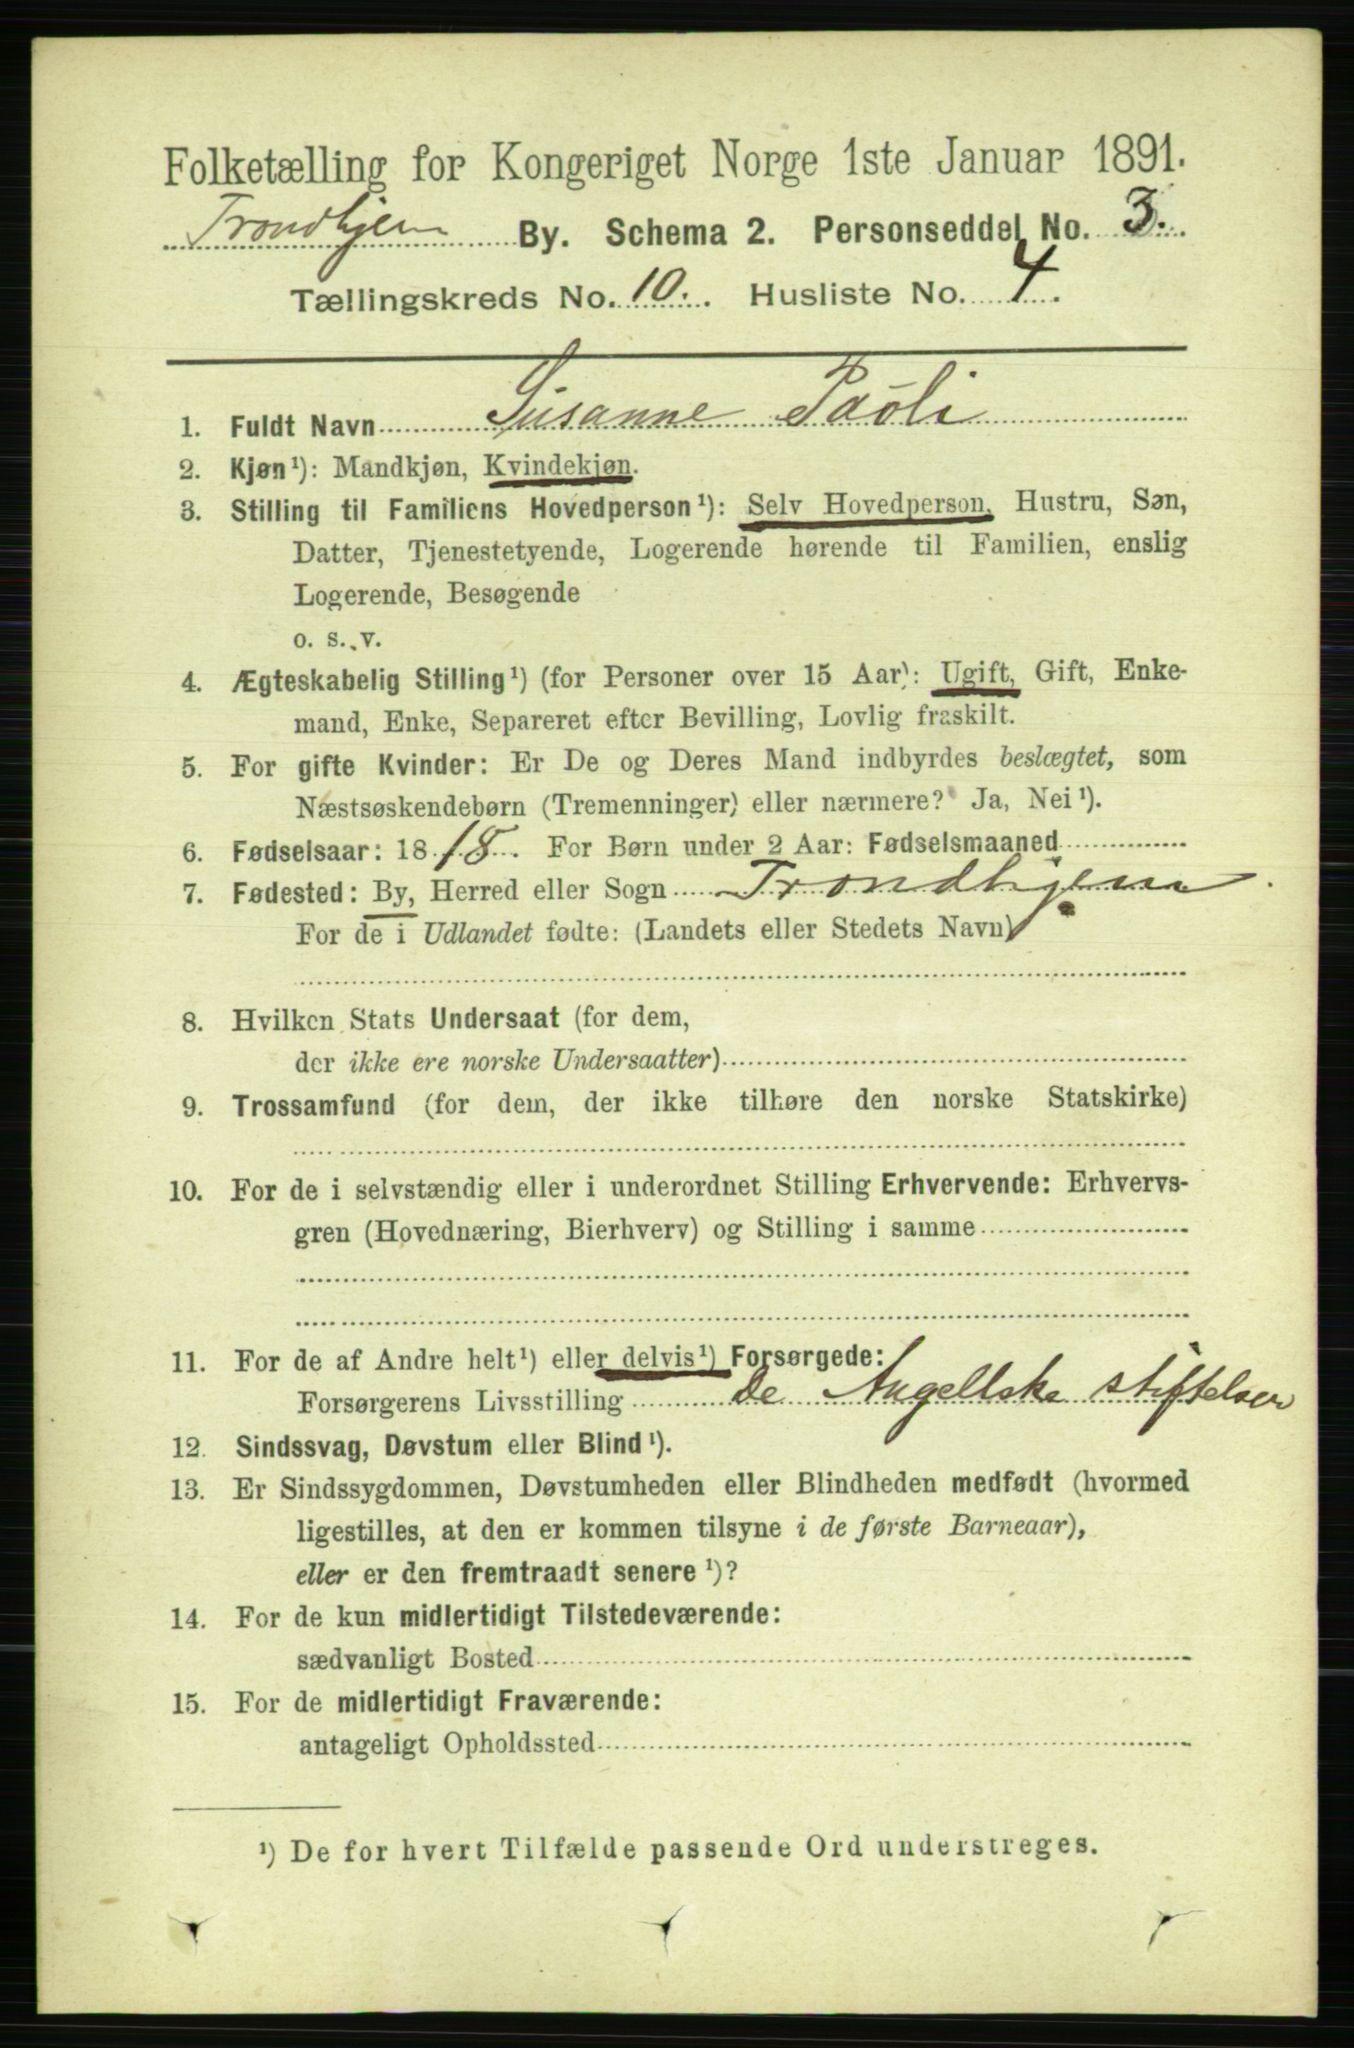 Folketælling for Kongeriget Norge 1ste Januar 1891.
Trondhjem By. Schema 2. Personseddel No. 3.
Tællingskreds No. 10. Husliste No. 4.
1. Fuldt Navn Susanne Paöli
2. Kjøn¹): Mandkjøn, Kvindekjøn.
3. Stilling til Familiens Hovedperson¹): Selv Hovedperson, Hustru, Søn,
Datter, Tjenestetyende, Logerende hørende til Familien, enslig
Logerende, Besøgende
o. s. v.
4. Ægteskabelig Stilling¹) (for Personer over 15 Aar): Ugift, Gift, Enke-
mand, Enke, Separeret efter Bevilling, Lovlig fraskilt.
5. For gifte Kvinder: Er De og Deres Mand indbyrdes beslægtet, som
Næstsøskendebørn (Tremenninger) eller nærmere? Ja, Nei¹).
6. Fødselsaar: 1818. For Børn under 2 Aar: Fødselsmaaned
7. Fødested: By, Herred eller Sogn Trondhjem
For de i Udlandet fødte: (Landets eller Stedets Navn)
8. Hvilken Stats Undersaat (for dem,
der ikke ere norske Undersaatter)
9. Trossamfund (for dem, der ikke tilhøre den norske Statskirke)
10. For de i selvstændig eller i underordnet Stilling Erhvervende: Erhvervs-
gren (Hovednæring, Bierhverv) og Stilling i samme
11. For de af Andre helt¹) eller delvis¹) Forsørgede:
Forsørgerens Livsstilling De Angellske stiftelser
12. Sindssvag, Døvstum eller Blind¹).
13. Er Sindssygdommen, Døvstumheden eller Blindheden medfødt (hvormed
ligestilles, at den er kommen tilsyne i de første Barneaar),
eller er den fremtraadt senere¹)?
14. For de kun midlertidigt Tilstedeværende:
sædvanligt Bosted
15. For de midlertidigt Fraværende:
antageligt Opholdssted
¹) De for hvert Tilfælde passende Ord understreges.